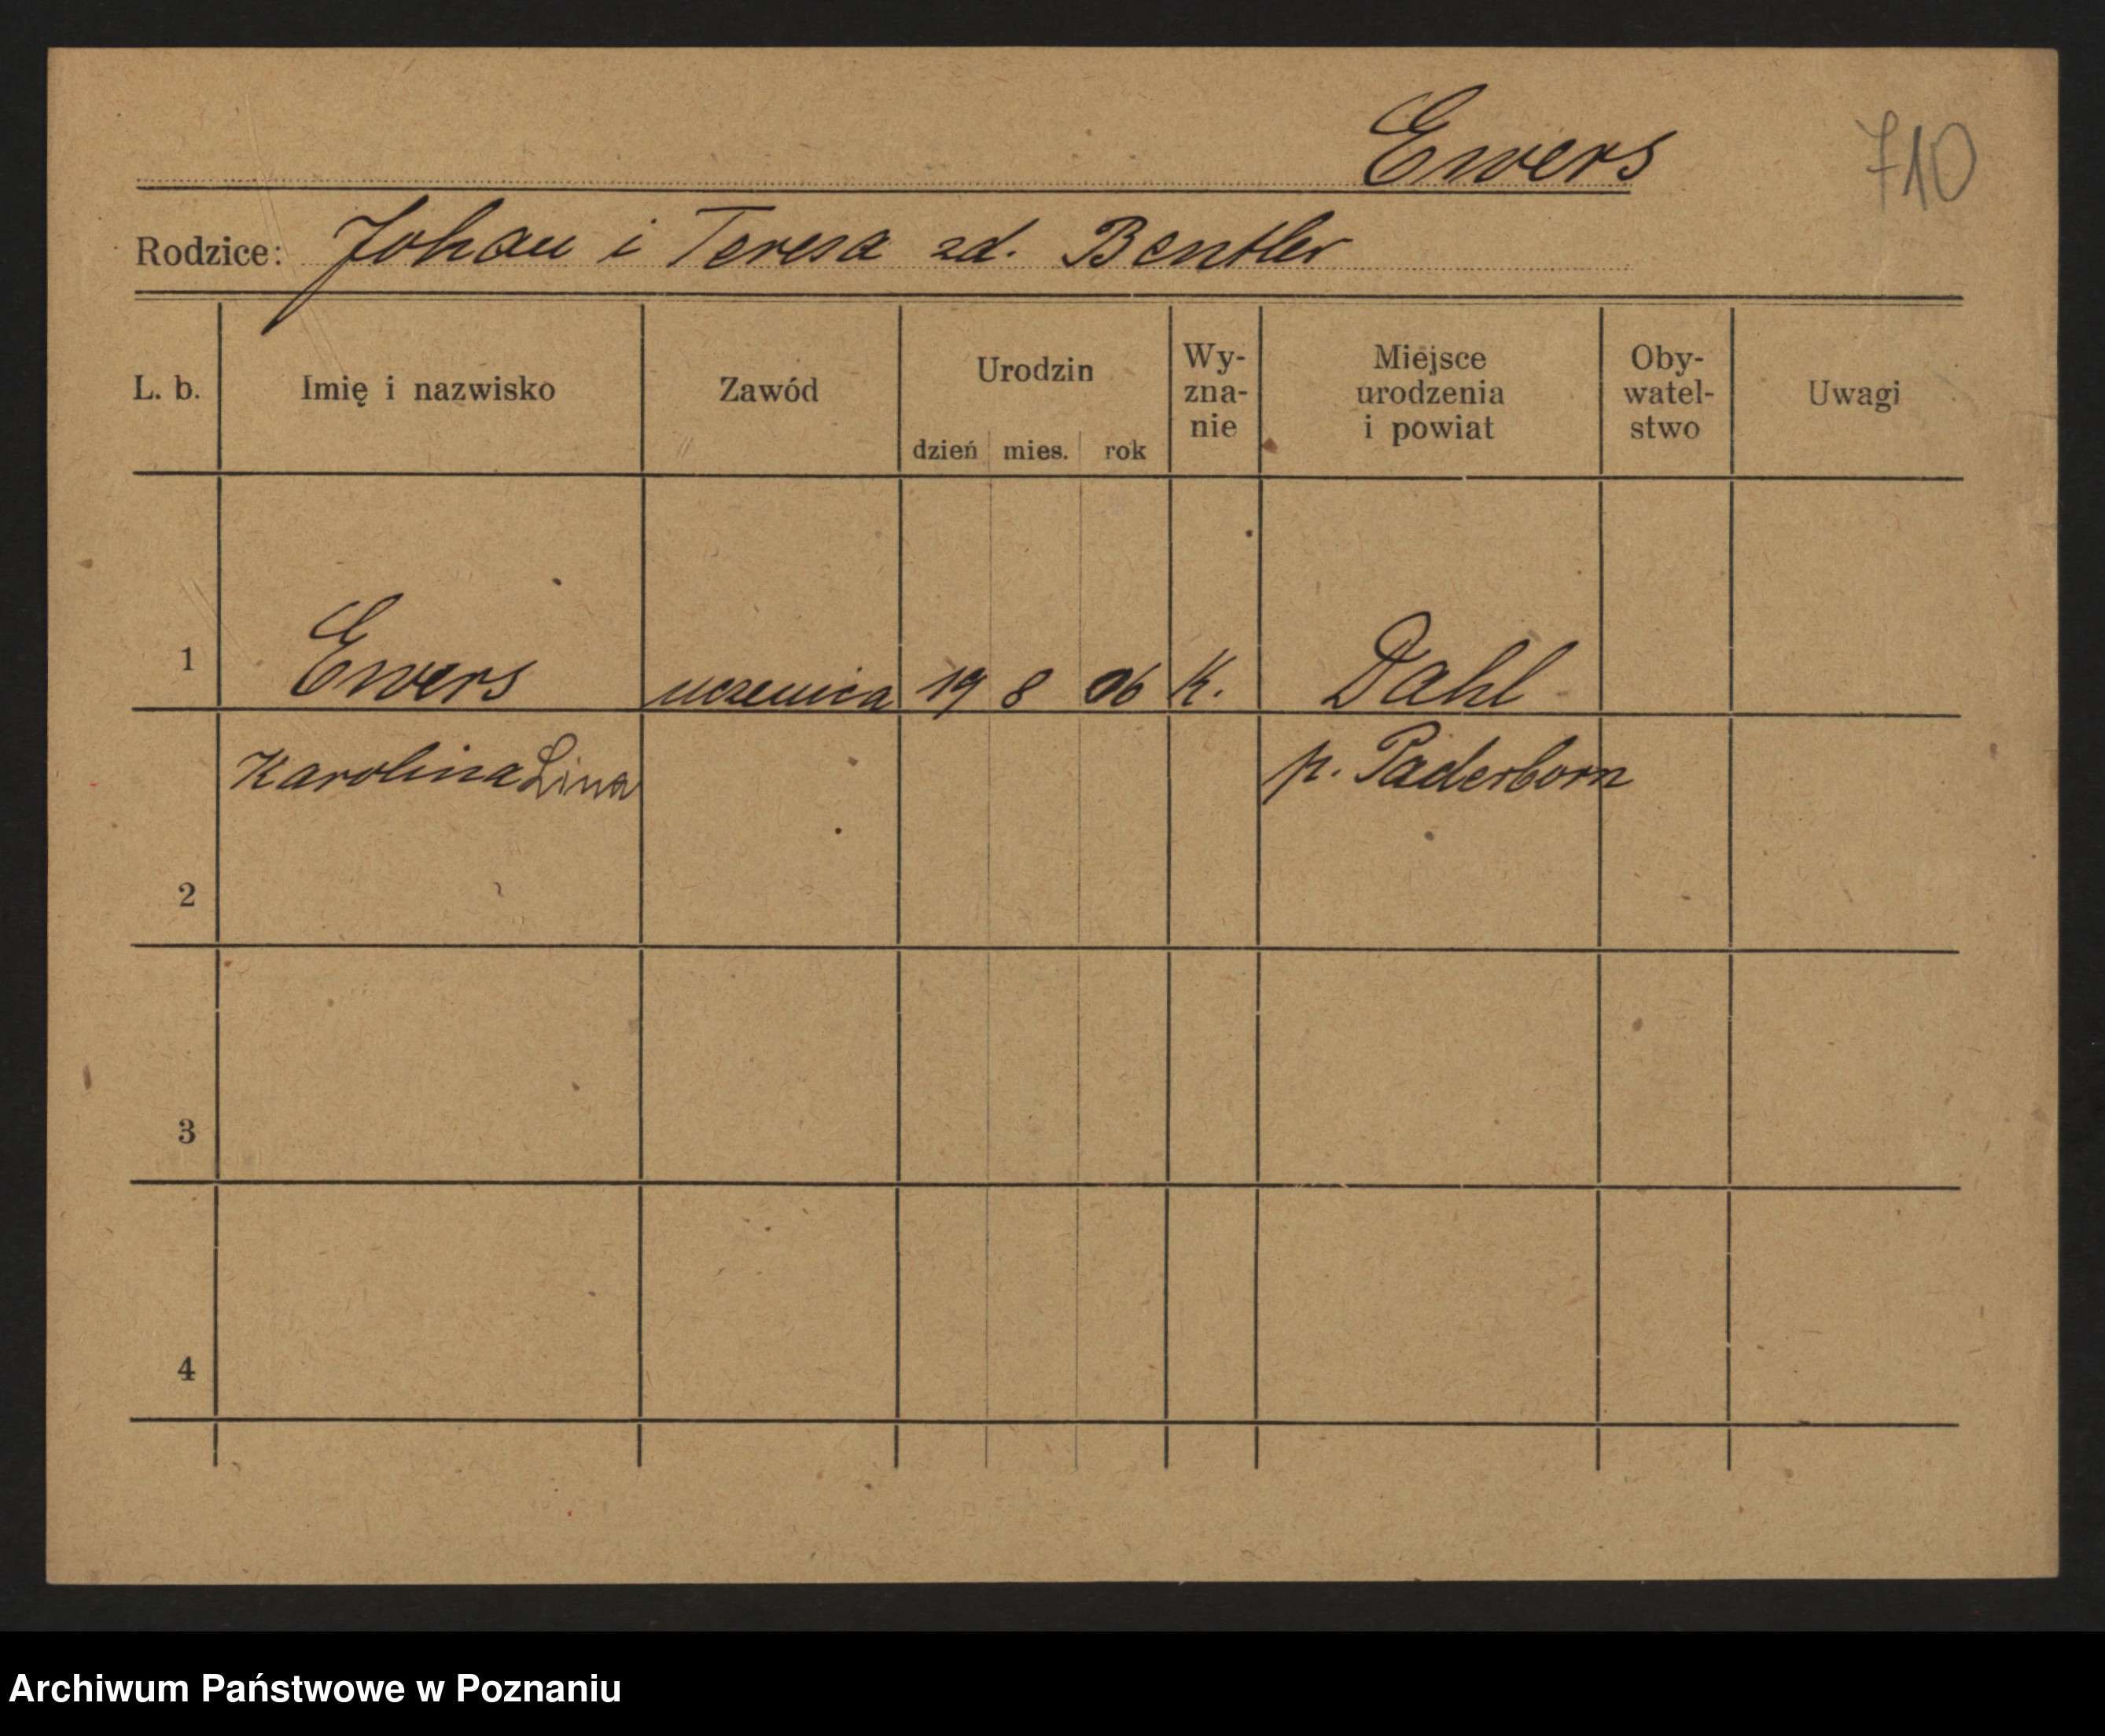 Ewers 710
Rodzice: Johan i Teresa zd. Bentler
L. b. Imię i nazwisko Zawód Urodzin dzień mies. rok Wy-zna-nie Miejsce urodzenia i powiat Oby-watel-stwo Uwagi
1 Ewers uczenica 19 8 06 K. Dahl
Karolina Lina p. Paderborn
2
3
4
Archiwum Państwowe w Poznaniu